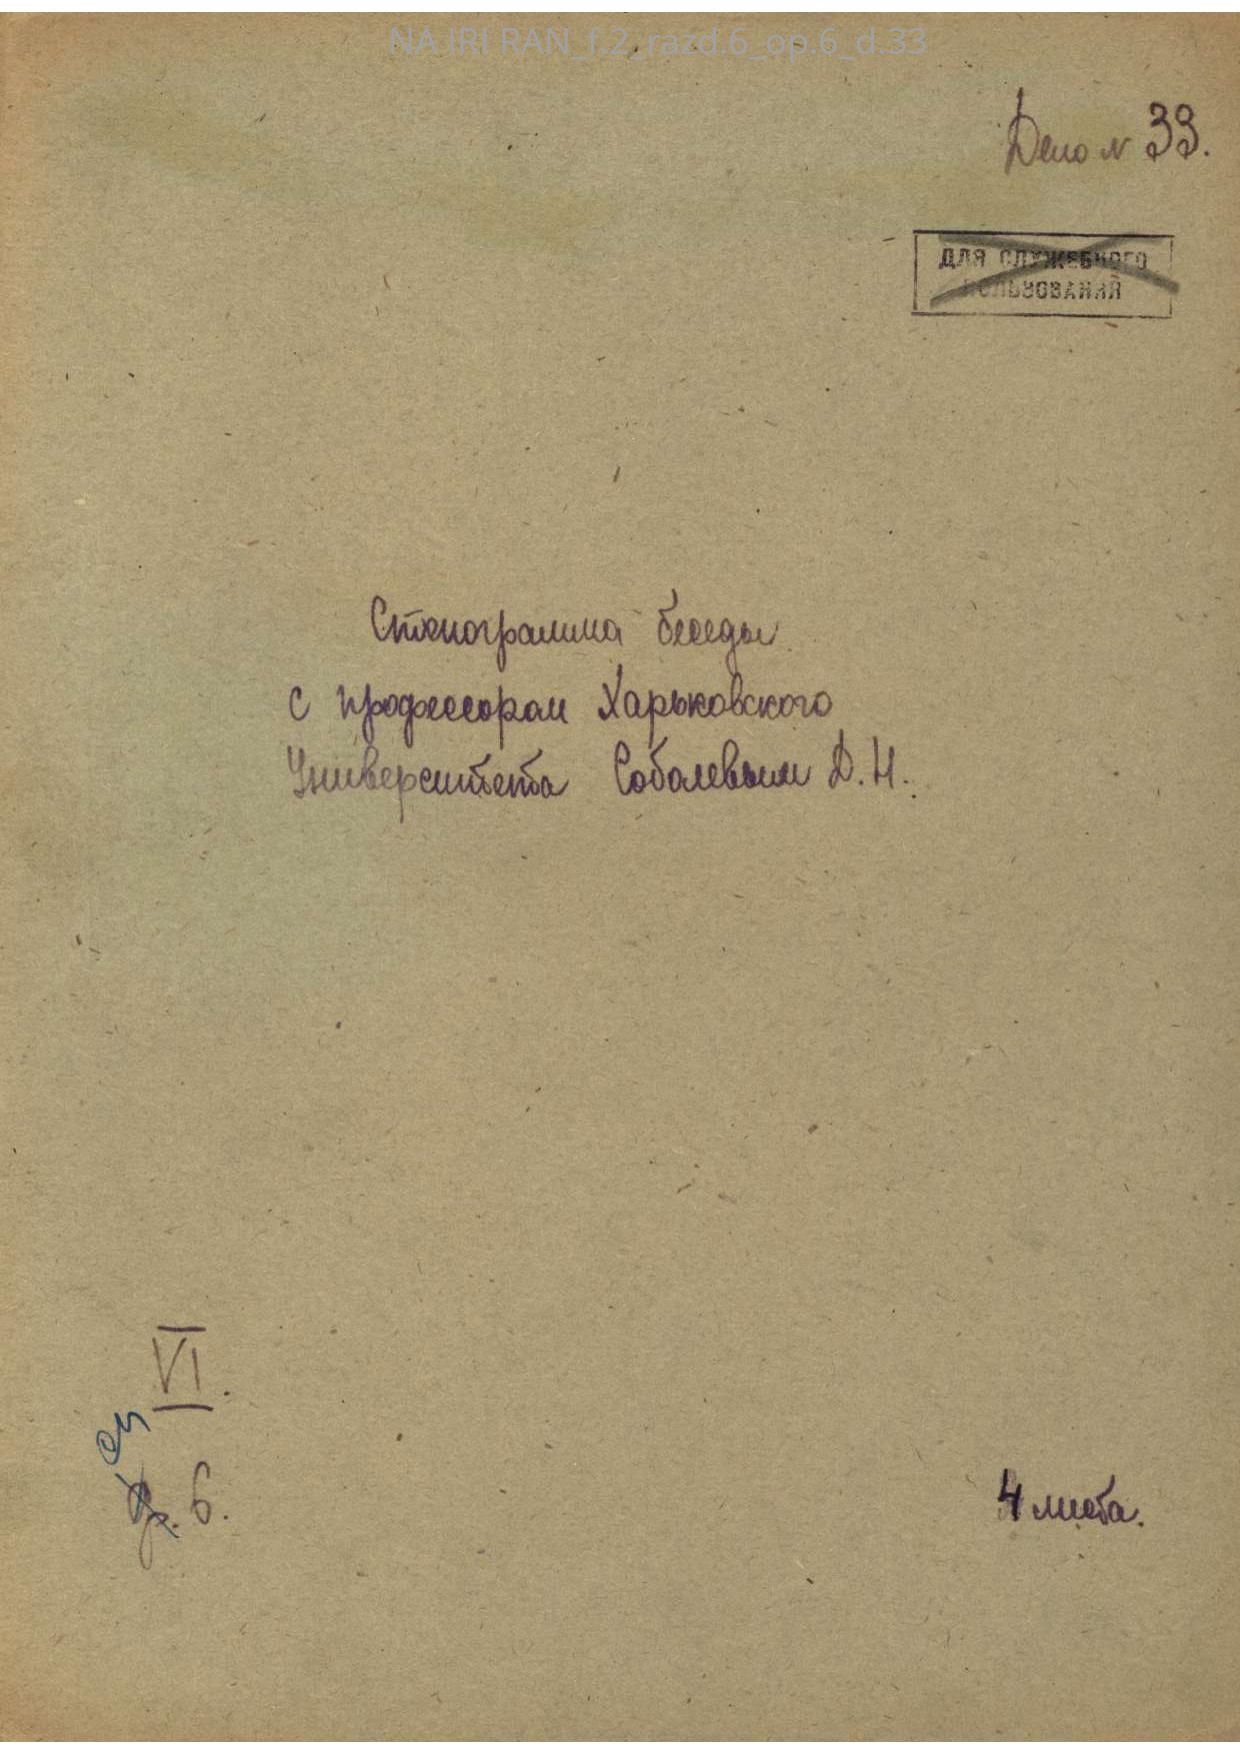 NA IRI RAN_f.2_razd.6_op.6_d.33
Дело № 33.
ДЛЯ СЛУЖЕБНОГО
ПОЛЬЗОВАНИЯ
Стенограмма беседы
с профессором Харьковского
Университета Соболевым Д.Н.
VI.
оп
6.
4 листа.